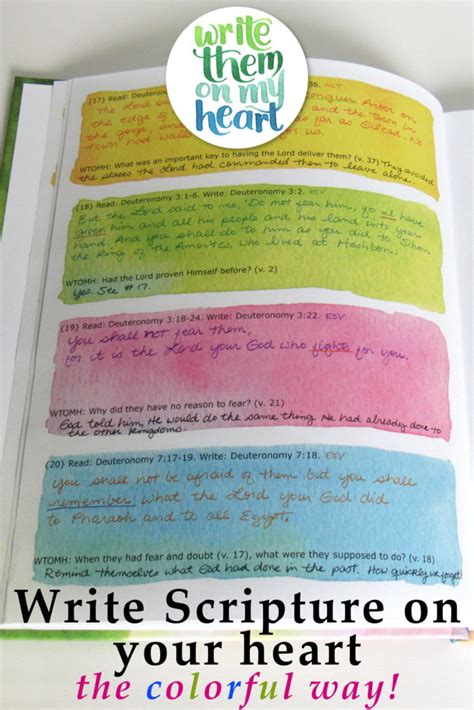 write
them
on my
heart
(17) Read: Deuteronomy 36. NLT
The Lord Aroer on
the edge of and the town in
the gorge, and as far as Gilead. No
town had walls for us.
WTOMH: What was an important key to having the Lord deliver them? (v. 37) They avoided
the places the Lord had commanded them to leave alone.
(18) Read: Deuteronomy 3:1-6. Write: Deuteronomy 3:2. ESV
But the Lord said to me, 'Do not fear him, for we have
given him and all his people and his land into your
hand. And you shall do to him as you did to Sihon
the King of the Amorites, who lived at Heshbon.
WTOMH: Had the Lord proven Himself before? (v. 2)
yes. See #17.
(19) Read: Deuteronomy 3:18-24. Write: Deuteronomy 3:22. ESV
You shall not fear them,
for it is the Lord your God who fights for you.
WTOMH: Why did they have no reason to fear? (v. 21)
God told him He would do the same thing He had already done to
the other Kingdoms.
(20) Read: Deuteronomy 7:17-19. Write: Deuteronomy 7:18. ESV
you shall not be afraid of them but you shall
remember what the Lord your God did
to Pharaoh and to all Egypt,
WTOMH: When they had fear and doubt (v. 17), what were they supposed to do? (v. 18)
Remind themselves what God had done in the past. How quickly we forget
Write Scripture on
your heart
the colorful way!